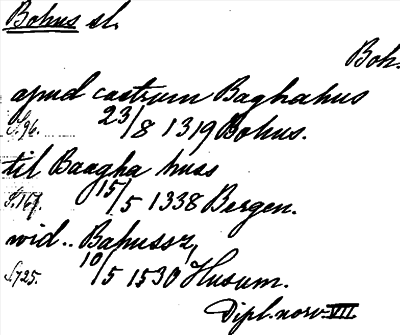 Bohus sl.
Boh.
apud castrum Baghahus
S. 96. 23/8 1319 Bohus.
til Baagha huss
S. 167. 15/5 1338 Bergen.
wid.. Bahussz,
S. 725. 10/5 1530 Husum.
Dipl. norv. VII.